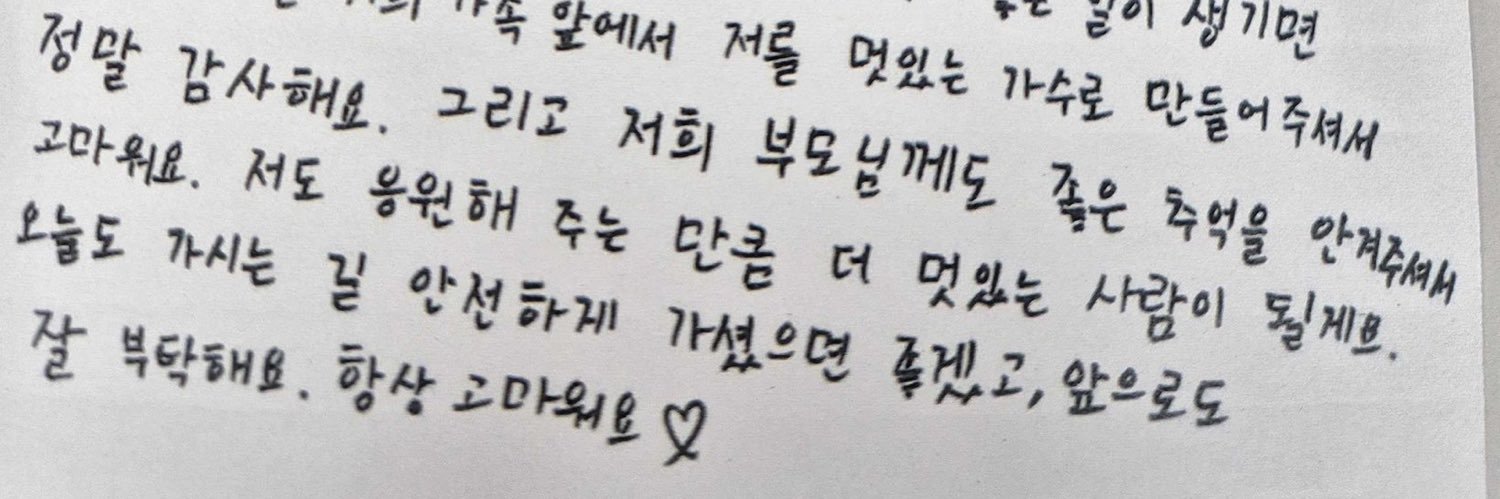 일이 생기면
가족 앞에서 저를 멋있는 가수로 만들어주셔서
정말 감사해요. 그리고 저희 부모님께도 좋은 추억을 안겨주셔서
고마워요. 저도 응원해 주는 만큼 더 멋있는 사람이 될게요.
오늘도 가시는 길 안전하게 가셨으면 좋겠고, 앞으로도
잘 부탁해요. 항상 고마워요 ♡